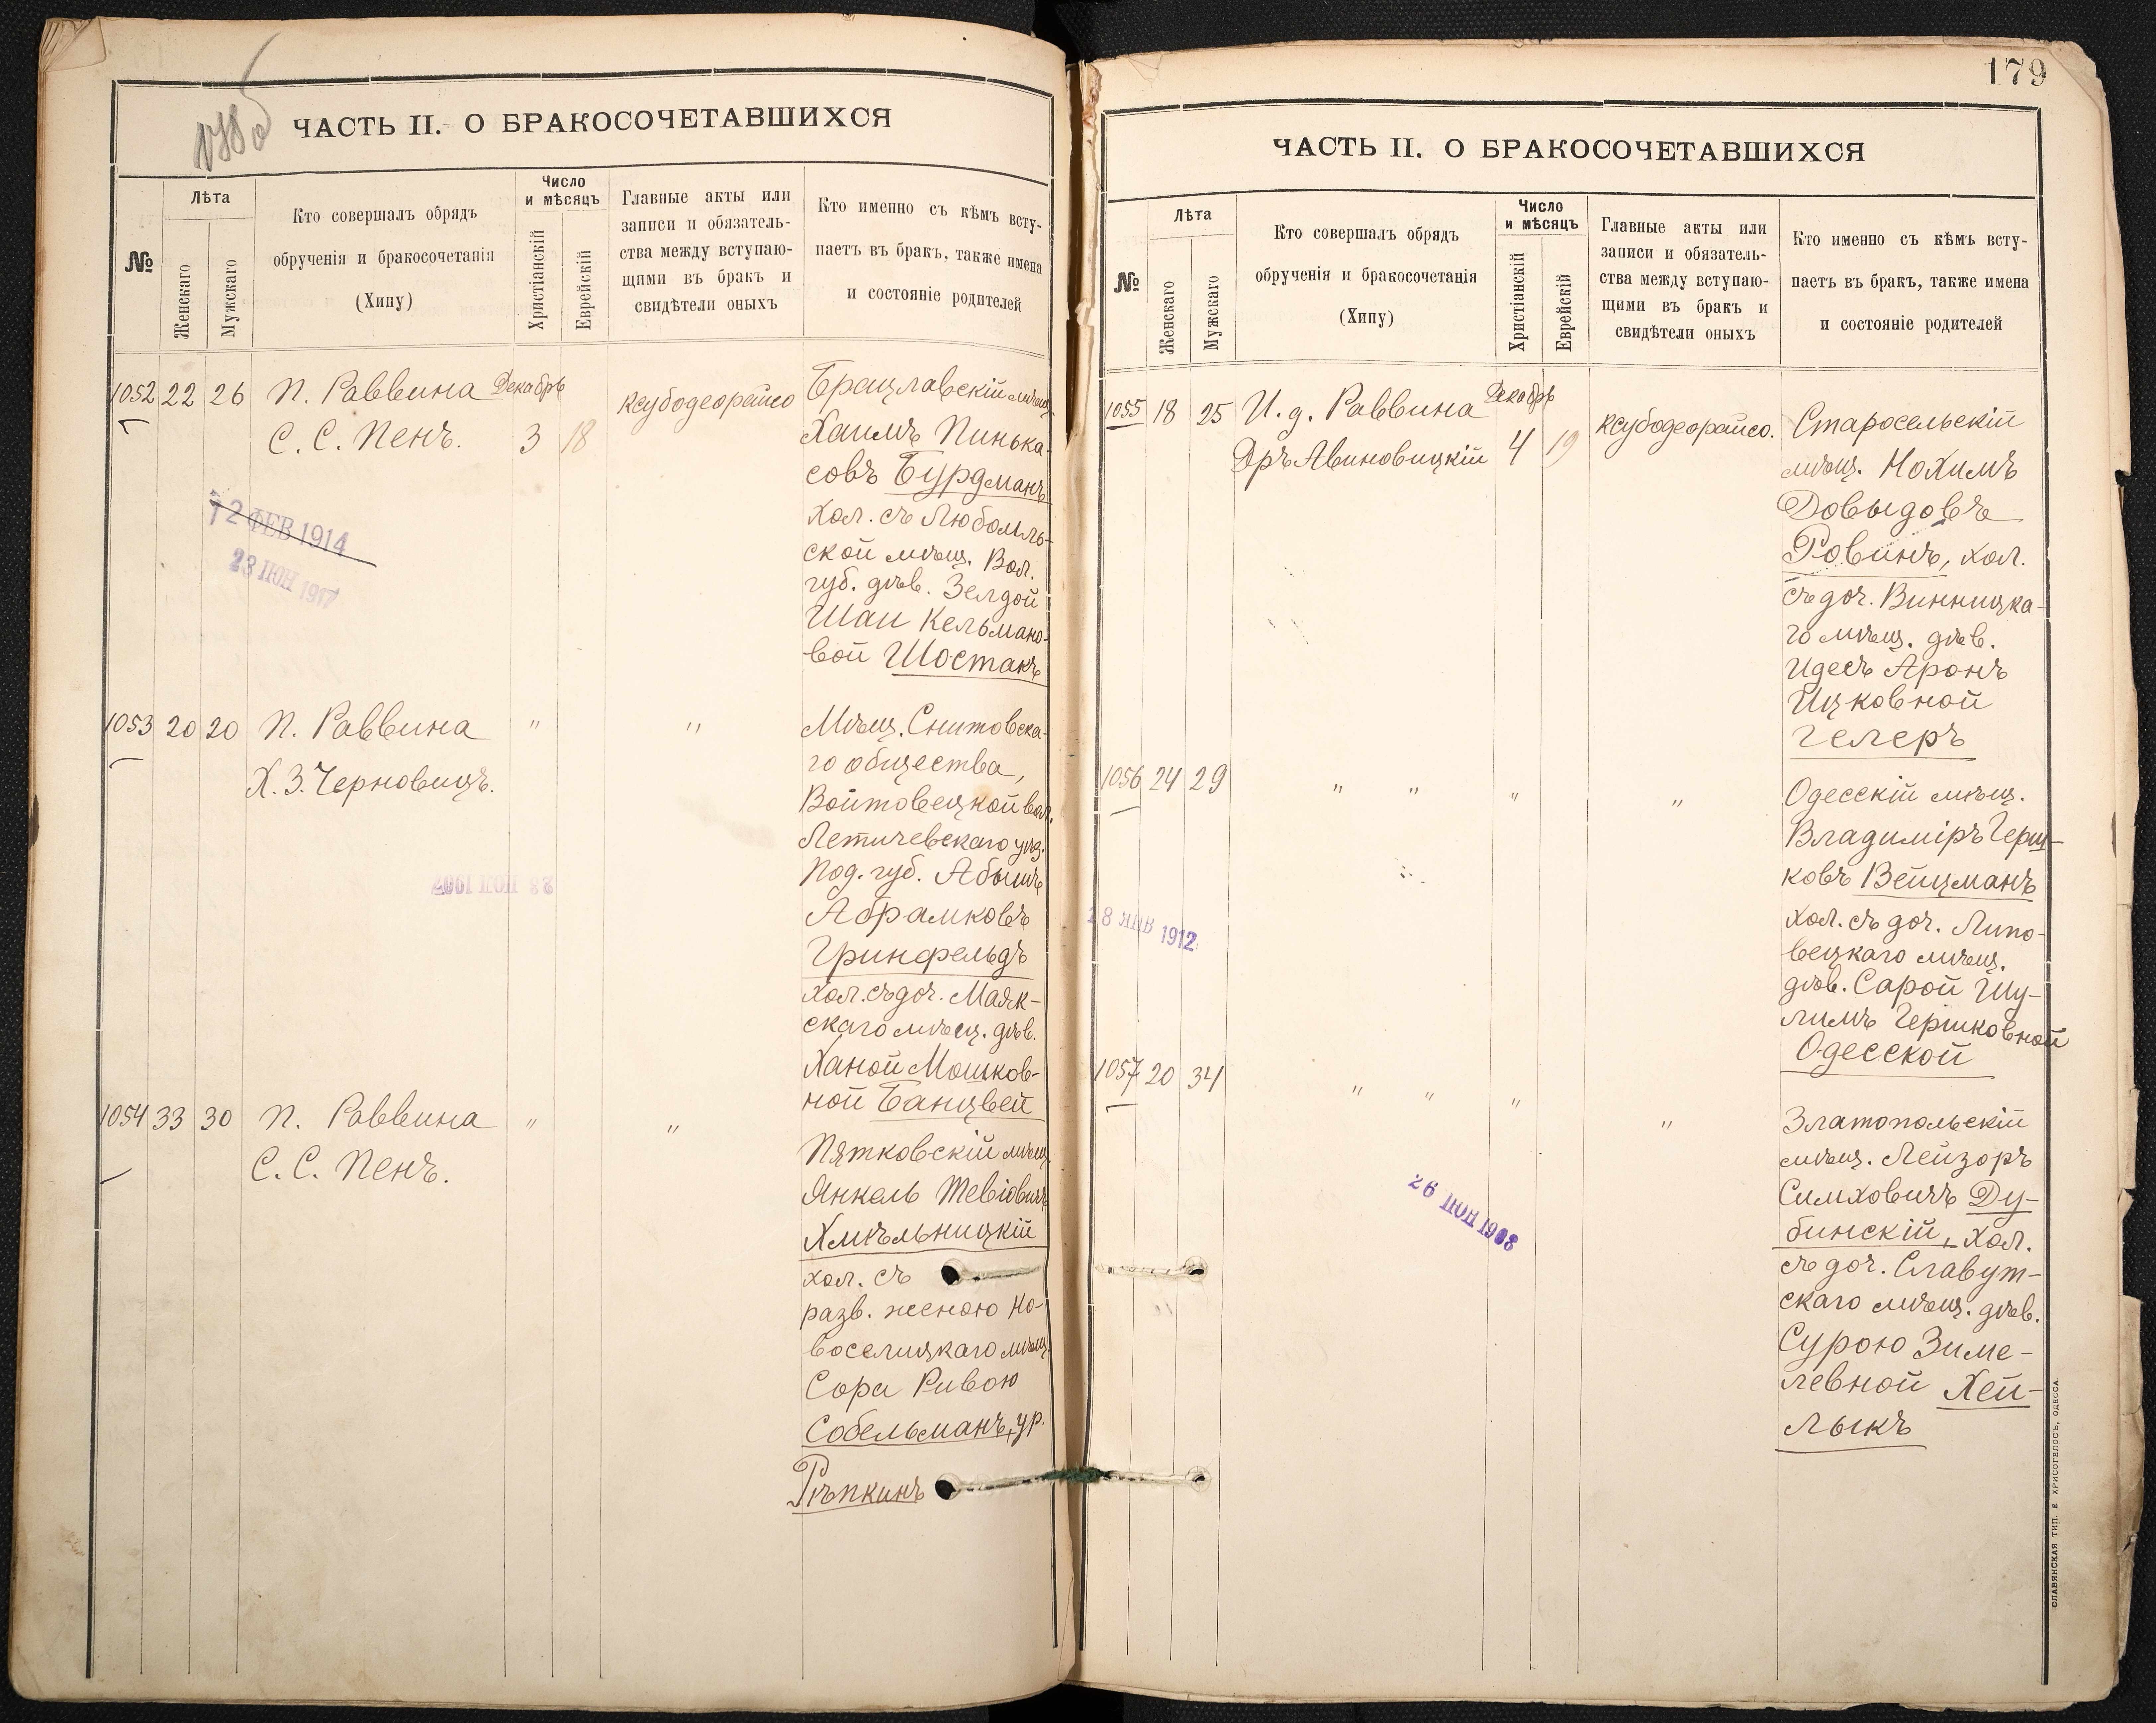 ЧАСТЬ II. О БРАКОСОЧЕТАВШИХСЯ
№
Лѣта
Женскаго
Мужскаго
Кто совершалъ обрядъ
обрученія и бракосочетанія
(Хипу)
Число
и мѣсяцъ
Христіанскій
Еврейскій
Главные акты или
записи и обязатель-
ства между вступаю-
щими въ бракъ и
свидѣтели оныхъ
Кто именно съ кѣмъ всту-
паетъ въ бракъ, также имена
и состояніе родителей
1052 22 26
П. Раввина
С. С. Пенъ.
Декабрь
3 18
Ксубодеорайсо
Брацлавскій мѣщ.
Хаимъ Пинька-
совъ Бурдманъ
хол. съ Любомль-
ской мѣщ. Вол.
губ. дѣв. Зелдой
Шаи Кельмано-
вой Шостакъ
2 ФЕВ 1914
23 ІЮН 1917
1053 20 20
П. Раввина
Х. З. Черновицъ.
"
"
Мѣщ. Снитовска-
го общества,
Войтовецкой вол.
Летичевскаго уѣз.
Под. губ. Абышъ
Абрамковъ
Гринфельдъ
хол. съ доч. Маяк-
скаго мѣщ. дѣв.
Ханой Мошков-
ной Банцвей
1054 33 30
П. Раввина
С. С. Пенъ.
"
"
Пятковскій мѣщ.
Янкель Тевіовичъ
Хмѣльницкій
хол. съ
разв. женою Но-
воселицкаго мѣщ.
Сора Ривою
Собельманъ, ур.
Рѣпкинъ
179
ЧАСТЬ II. О БРАКОСОЧЕТАВШИХСЯ
№
Лѣта
Женскаго
Мужскаго
Кто совершалъ обрядъ
обрученія и бракосочетанія
(Хипу)
Число
и мѣсяцъ
Христіанскій
Еврейскій
Главные акты или
записи и обязатель-
ства между вступаю-
щими въ бракъ и
свидѣтели оныхъ
Кто именно съ кѣмъ всту-
паетъ въ бракъ, также имена
и состояніе родителей
1055 18 25
И. д. Раввина
Дръ Авиновицкій
Декабрь
4 19
Ксубодеорайсо.
Старосельскій
мѣщ. Нохимъ
Довыдовъ
Ровинъ, хол.
съ доч. Винницка-
го мѣщ. дѣв.
Идесъ Аронъ
Ицковной
Гелеръ
1056 24 29
" "
"
"
Одесскій мѣщ.
Владиміръ Герш-
ковъ Вейцманъ
хол. съ доч. Липо-
вецкаго мѣщ.
дѣв. Сарой Шу-
лимъ Гершковной
Одесской
8 ЯНВ 1912
1057 20 34
" "
"
"
Златопольскій
мѣщ. Лейзоръ
Симховичъ Ду-
бинскій, хол.
съ доч. Славут-
скаго мѣщ. дѣв.
Сурою Зиме-
левной Хей-
лыкъ
26 ІЮН 1908
СЛАВЯНСКАЯ ТИП. Е ХРИСОГЕЛОСЪ, ОДЕССА